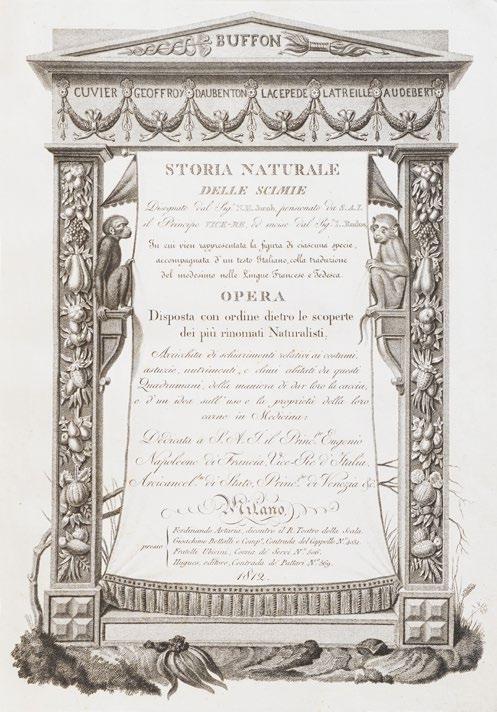 BUFFON
CUVIER GEOFFROY DAUBENTON LACEPEDE LATREILLE AUDEBERT
STORIA NATURALE
DELLE SCIMIE
Disegnate dal Sig.r N. H. Jacob, pensionato da S.A.I.
il Principe VICE-RE, ed incise dal Sig.r L. Rados,
In cui vien rappresentata la figura di ciascuna specie,
accompagnata d'un testo Italiano, colla traduzione
del medesimo nelle Lingue Francese e Tedesca.
OPERA
Disposta con ordine dietro le scoperte
dei più rinomati Naturalisti,
Arricchita di schiarimenti relativi ai costumi,
astuzie, nutrimenti, e climi abitati da questi
Quadrumani, della maniera di dar loro la caccia,
e d'un idea sull'uso e la proprietà della loro
carne in Medicina:
Dedicata a S.A.I. il Princ.pe Eugenio
Napoleone di Francia, Vice-Rè d'Italia,
Arcicancel.re di Stato, Princ.pe di Venezia &c.
Milano,
presso
Ferdinando Artaria, dicontro il R. Teatro della Scala.
Gioachimo Bettalli e Comp.o, Contrada del Cappello N.o 4031.
Fratelli Ubicini, Corsia de' Servi N.o 606.
Hugues, editore, Contrada de' Pattari N.o 569.
1812.